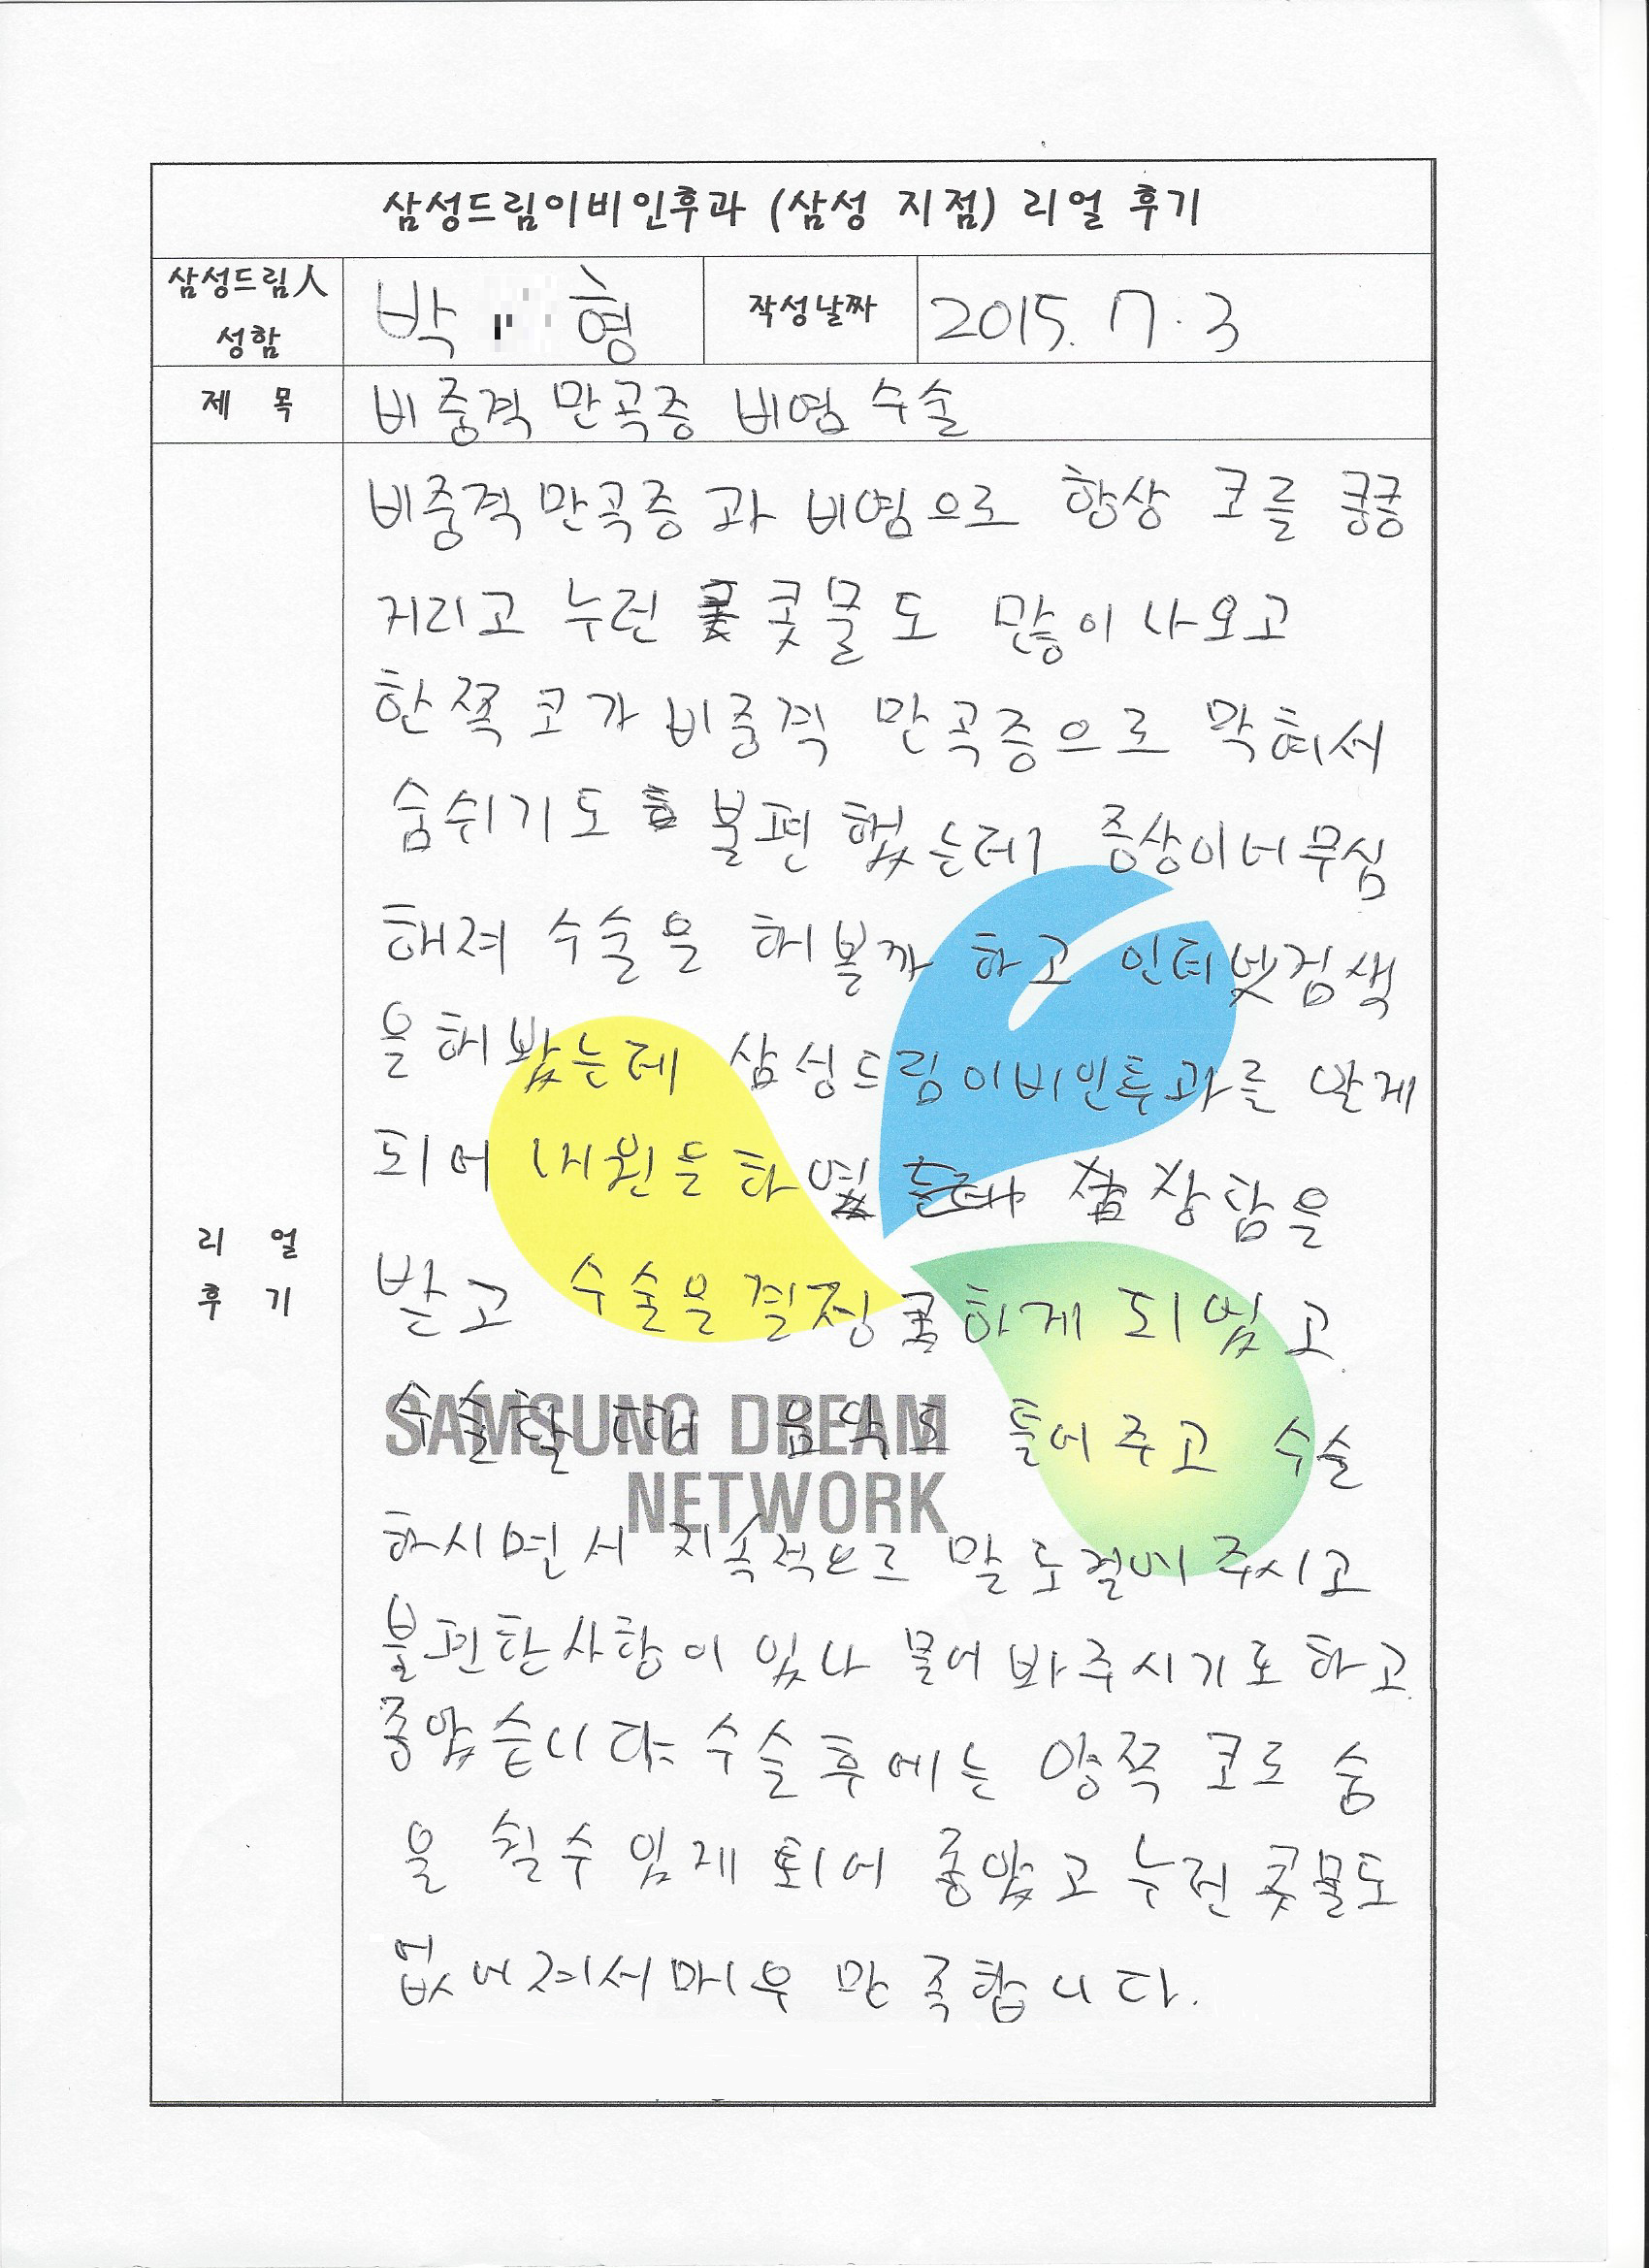 삼성드림이비인후과 (삼성 지점) 리얼 후기
삼성드림人 성함
박 형
작성날짜
2015. 7. 3
제 목
비중격 만곡증 비염 수술
리 얼 후 기
비중격 만곡증 과 비염으로 항상 코를 킁킁
거리고 누런 콧물도 많이 나오고
한쪽 코가 비중격 만곡증으로 막혀서
숨쉬기도 불편했는데 증상이너무심
해져 수술을 해볼까 하고 인터넷검색
을해봤는데 삼성드림이비인후과를 알게
되어 내원을하였 상담을
받고 수술을결정하게 되었고.
수술할 때 음악도 틀어주고 수술
하시면서 지속적으로 말도걸어주시고
불편한사항이 있나 물어봐주시기도하고.
좋았습니다 수술후에는 양쪽 코로 숨
을 쉴수 있게 되어 좋았고 누런콧물도
없어져서매우 만족합니다.
SAMSUNG DREAM
NETWORK